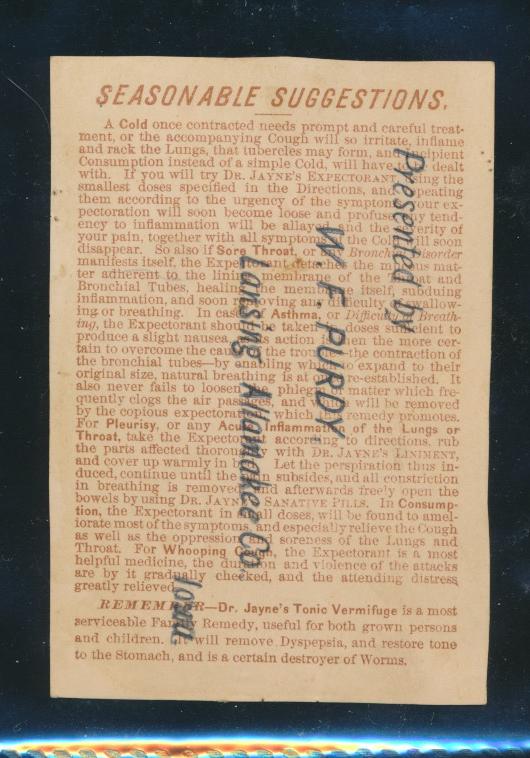 SEASONABLE SUGGESTIONS.
A Cold once contracted needs prompt and careful treat-
ment, or the accompanying Cough will so irritate, inflame
and rack the Lungs, that tubercles may form, and incipient
Consumption instead of a simple Cold, will have to be dealt
with. If you will try DR. JAYNE'S EXPECTORANT, using the
smallest doses specified in the Directions, and repeating
them according to the urgency of the symptoms, your ex-
pectoration will soon become loose and profuse, any tend-
ency to inflammation will be allayed, and the severity of
your pain, together with all symptoms of the Cold will soon
disappear. So also if Sore Throat, or any Bronchial Disorder
manifests itself, the Expectorant detaches the mucous mat-
ter adherent to the lining membrane of the Throat and
Bronchial Tubes, healing the membrane itself, subduing
inflammation, and soon removing any difficulty of swallow-
ing or breathing. In case of Asthma, or Difficulty of Breath-
ing, the Expectorant should be taken in doses sufficient to
produce a slight nausea, its action is then the more cer-
tain to overcome the cause of the trouble—the contraction of
the bronchial tubes—by enabling which to expand to their
original size, natural breathing is at once re-established. It
also never fails to loosen the phlegm or matter which fre-
quently clogs the air passages, and which will be removed
by the copious expectoration which the remedy promotes.
For Pleurisy, or any Acute Inflammation of the Lungs or
Throat, take the Expectorant according to directions, rub
the parts affected thoroughly with DR. JAYNE'S LINIMENT,
and cover up warmly in bed. Let the perspiration thus in-
duced, continue until the pain subsides, and all constriction
in breathing is removed, and afterwards freely open the
bowels by using DR. JAYNE'S SANATIVE PILLS. In Consump-
tion, the Expectorant in small doses, will be found to amel-
iorate most of the symptoms, and especially relieve the Cough
as well as the oppression and soreness of the Lungs and
Throat. For Whooping Cough, the Expectorant is a most
helpful medicine, the duration and violence of the attacks
are by it gradually checked, and the attending distress
greatly relieved.
REMEMBER—Dr. Jayne's Tonic Vermifuge is a most
serviceable Family Remedy, useful for both grown persons
and children. It will remove Dyspepsia, and restore tone
to the Stomach, and is a certain destroyer of Worms.
Presented by
W. F. PURDY,
Lansing Allamakee Co. Iowa.